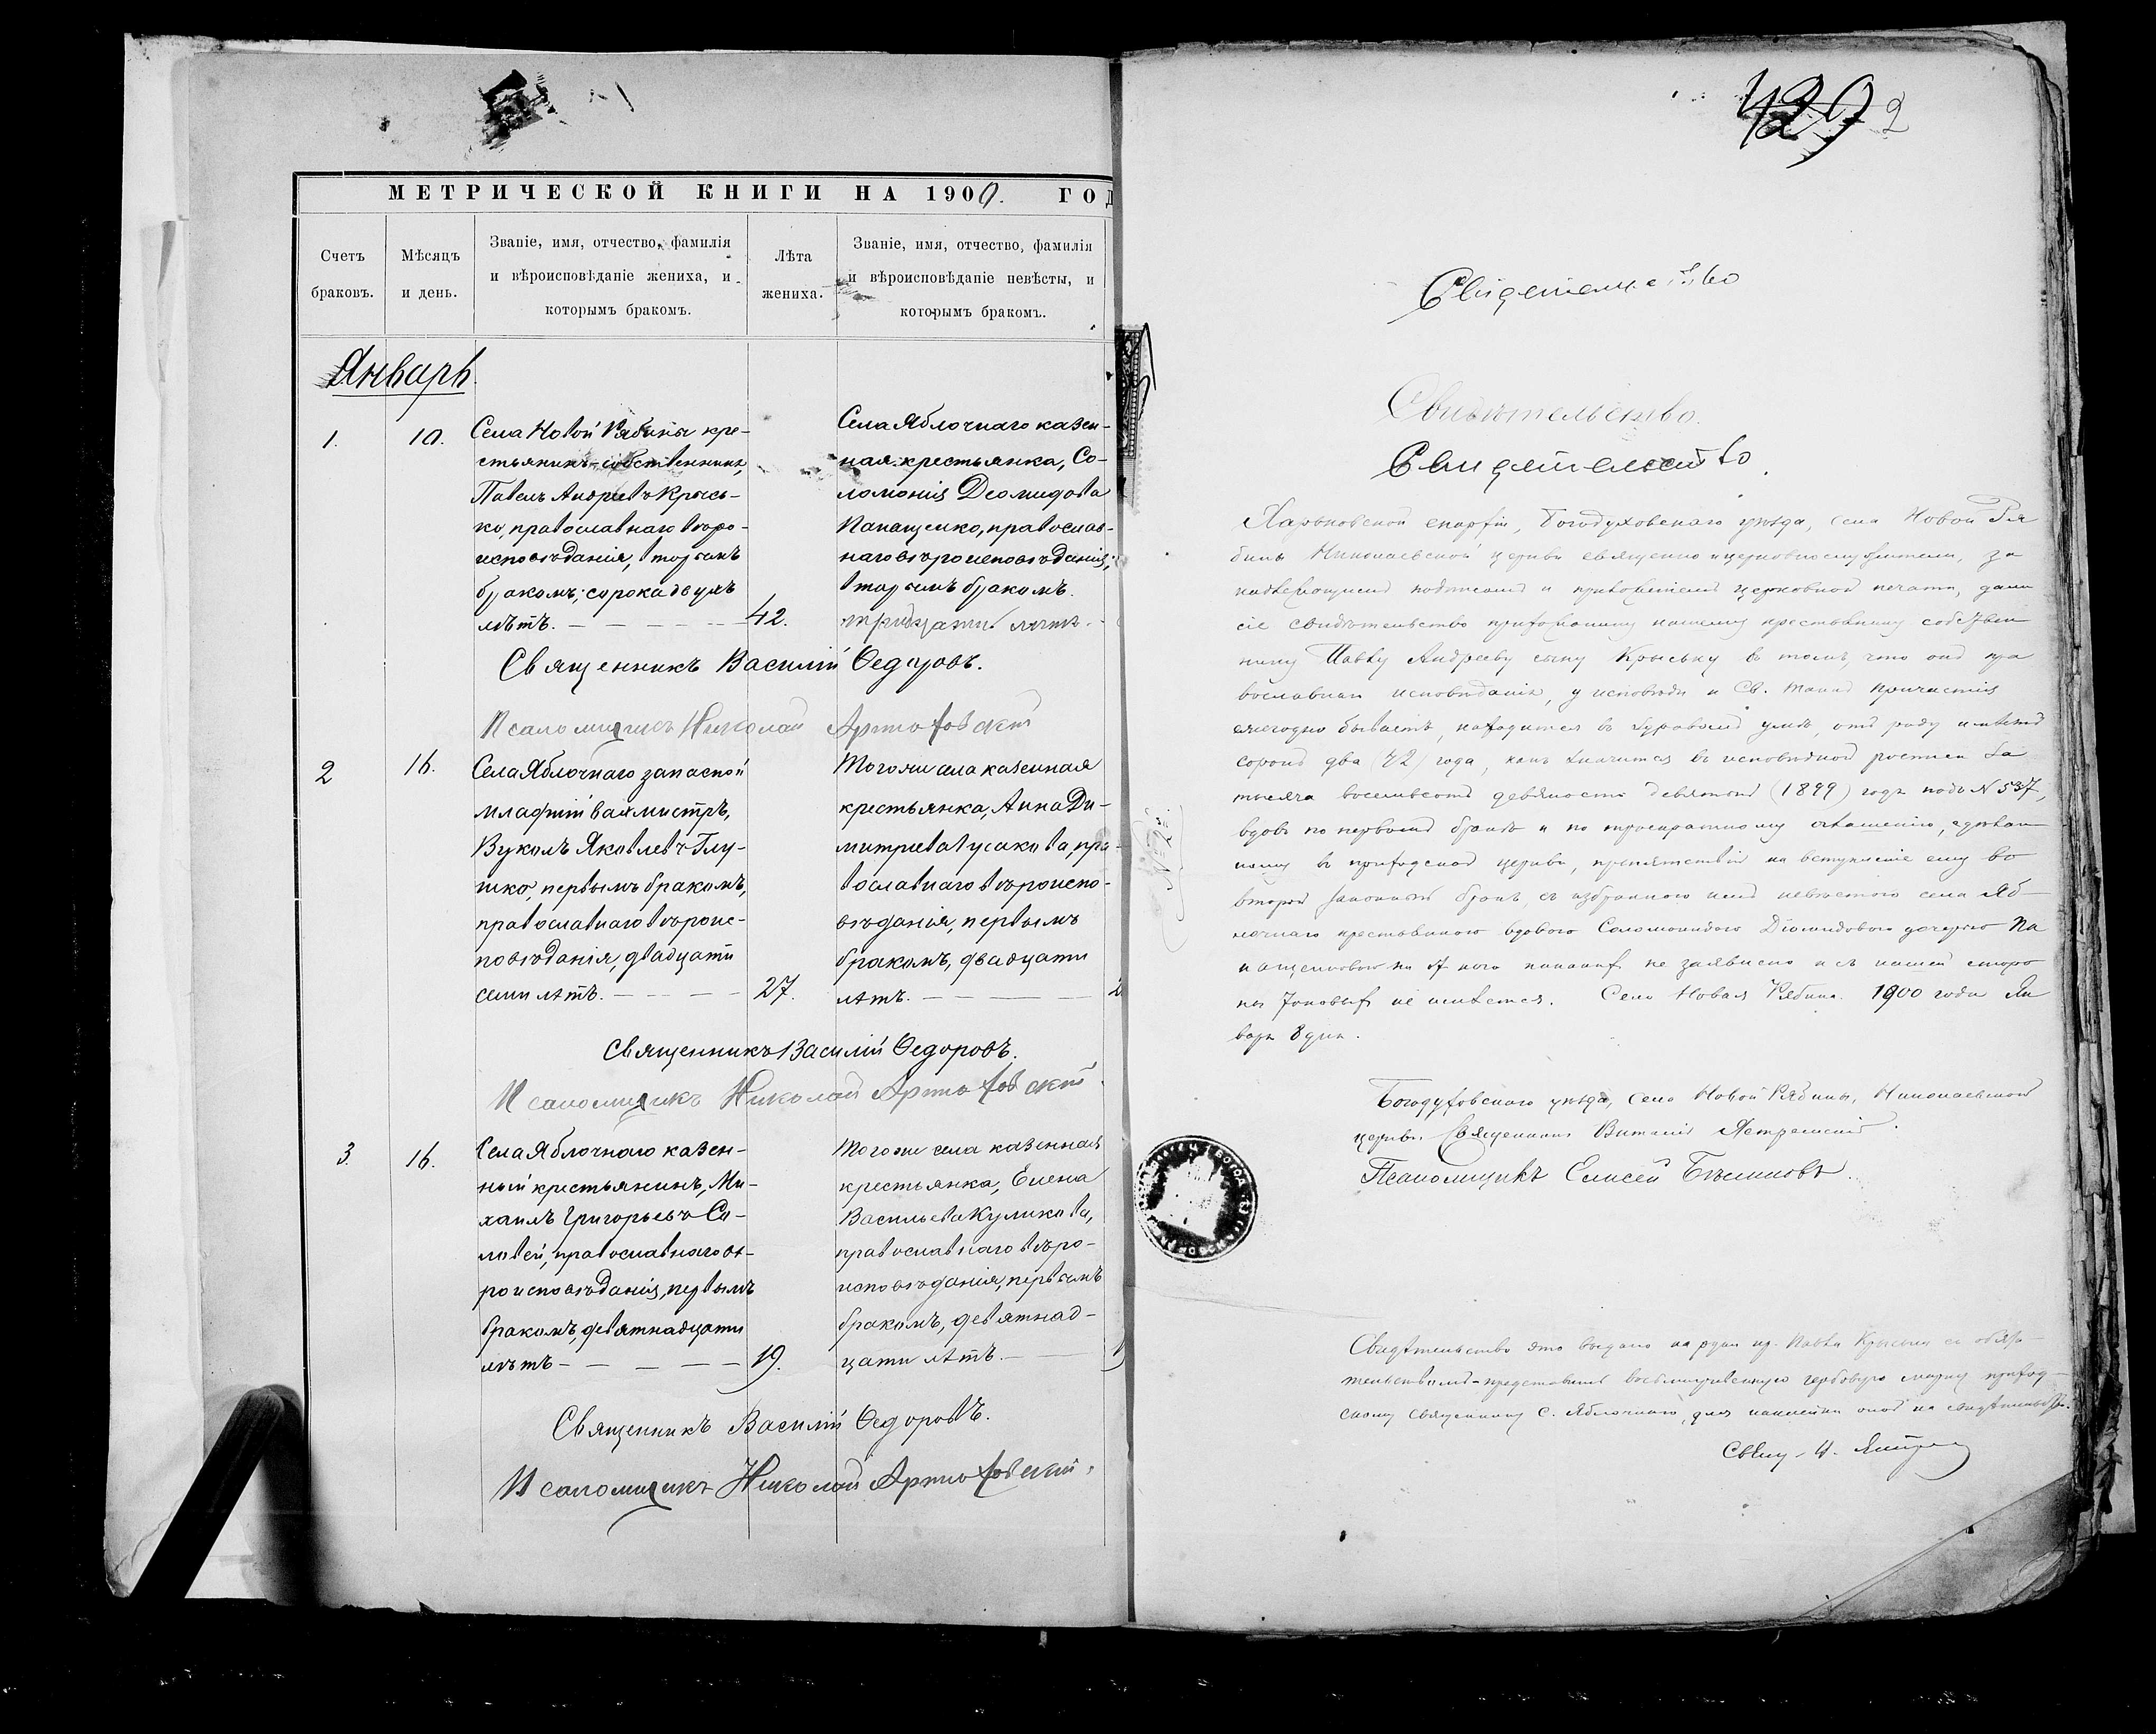 МЕТРИЧЕСКОЙ КНИГИ НА 1900. ГОД
Счетъ браковъ.
Мѣсяцъ и день.
Званіе, имя, отчество, фамилія и вѣроисповѣданіе жениха, и которымъ бракомъ.
Лѣта жениха.
Званіе, имя, отчество, фамилія и вѣроисповѣданіе невѣсты, и которымъ бракомъ.
Январь.
1.
10.
Села Новой Рябины кре-
стьянинъ-собственникъ,
Павелъ Андреевъ Крысь-
ко, православнаго вѣро-
исповѣданія, вторымъ
бракомъ; сорока двухъ
лѣтъ.
42.
Села Яблочнаго казен-
ная крестьянка, Со-
ломонія Деомидова
Папащенко, православ-
наго вѣроисповѣданія;
вторымъ бракомъ.
тридцати лѣтъ.
Священникъ Василій Ѳедоровъ.
Псаломщикъ Николай Артюховскій
2
16.
Села Яблочнаго запасной
младшій вахмистръ,
Вуколъ Яковлевъ Глу-
шко, первымъ бракомъ,
православнаго вѣроис-
повѣданія, двадцати
семи лѣтъ.
27.
Того же села казенная
крестьянка, Анна Ди-
митриева Гусакова, пра-
вославнаго вѣроиспо-
вѣданія, первымъ
бракомъ, двадцати
лѣтъ.
2
Священникъ Василій Ѳедоровъ.
Псаломщикъ Николай Артюховскій
3.
16.
Села Яблочнаго казен-
ный крестьянинъ, Ми-
хаилъ Григорьевъ Со-
ловей, православнаго вѣ-
роисповѣданія, первымъ
бракомъ, девятнадцати
лѣтъ
19.
Того же села казенная
крестьянка, Елена
Васильева Куликова,
православнаго вѣро-
исповѣданія, первымъ
бракомъ, девятнад-
цати лѣтъ.
1
Священникъ Василій Ѳедоровъ.
Псаломщикъ Николай Артюховскій
429 2
Свидетельство
Свидѣтельство.
Свидетельство.
Харьковской епархіи, Богодуховскаго уѣзда, села Новой Ря
бины Николаевской церкви священно и церковнослужители, за
надлежащимъ подписомъ и приложеніемъ церковной печати, дали
сіе свидѣтельство прихожанину нашему крестьянину собствен
нику Павлу Андрееву сыну Крыську въ томъ, что онъ пра
вославнаго исповѣданія, у исповѣди и Св. Таинъ Причастія
ежегодно бываетъ, находится въ здравомъ умѣ, отъ роду имѣетъ
сорокъ два (42) года, какъ значится въ исповѣдной росписи за
тысяча восемьсотъ девяносто девятый (1899) годъ подъ № 537,
вдовъ по первомъ бракѣ и по троекратному оглашенію, сдѣлан
ному въ приходской церкви, препятствій на вступленіе ему во
второй законный бракъ, съ избранною имъ невѣстою села Яб
лочнаго крестьянкою вдовою Соломонидою Діомидовою дочерью Па
пащенковою ни отъ кого никакихъ не заявлено и съ нашей сторо
ны таковыхъ не имѣется. Село Новая Рябина. 1900 года Ян
варя 8 дня.
Богодуховскаго уѣзда, села Новой Рябины, Николаевской
церкви Священникъ Виталій
Псаломщикъ Елисей
№ 2
Свидѣтельство это выдано на руки кр. Павла Крыська съ обяза-
тельствомъ представить восьмигривенную гербовую марку приход-
скому священнику с. Яблочнаго, для наклейки оной на свидѣтельствѣ.